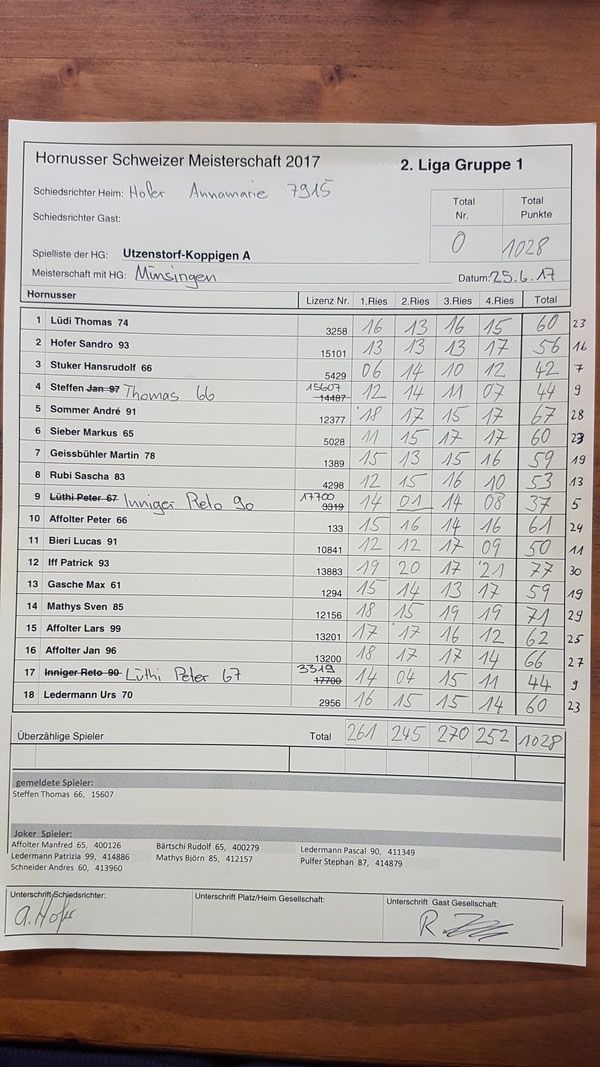 Hornusser Schweizer Meisterschaft 2017 2. Liga Gruppe 1
Schiedsrichter Heim: Hofer Annamarie 7915
Schiedsrichter Gast:
Total Nr. Total Punkte
0 1028
Spielliste der HG: Utzenstorf-Koppigen A
Meisterschaft mit HG: Münsingen Datum: 25.6.17
Hornusser Lizenz Nr. 1.Ries 2.Ries 3.Ries 4.Ries Total
1 Lüdi Thomas 74 3258 16 13 16 15 60 23
2 Hofer Sandro 93 15101 13 13 13 17 56 16
3 Stuker Hansrudolf 66 5429 06 14 10 12 42 7
4 Steffen Jan 97 Thomas 66 15607 14487 12 14 11 07 44 9
5 Sommer André 91 12377 '18 17 15 17 67 28
6 Sieber Markus 65 5028 11 15 17 17 60 23
7 Geissbühler Martin 78 1389 15 13 15 16 59 19
8 Rubi Sascha 83 4298 12 15 16 10 53 13
9 Lüthi Peter 67 Inniger Reto 90 17700 3319 14 01 14 08 37 5
10 Affolter Peter 66 133 15 16 14 16 61 24
11 Bieri Lucas 91 10841 12 12 17 09 50 11
12 Iff Patrick 93 13883 19 20 17 '21 77 30
13 Gasche Max 61 1294 15 14 13 17 59 19
14 Mathys Sven 85 12156 18 15 19 19 71 29
15 Affolter Lars 99 13201 17 '17 16 12 62 25
16 Affolter Jan 96 13200 18 17 17 14 66 27
17 Inniger Reto 90 Lüthi Peter 67 3319 17700 14 04 15 11 44 9
18 Ledermann Urs 70 2956 16 15 15 14 60 23
Überzählige Spieler Total 261 245 270 252 1028
gemeldete Spieler:
Steffen Thomas 66, 15607
Joker Spieler:
Affolter Manfred 65, 400126 Bärtschi Rudolf 65, 400279 Ledermann Pascal 90, 411349
Ledermann Patrizia 99, 414886 Mathys Björn 85, 412157 Pulfer Stephan 87, 414879
Schneider Andres 60, 413960
Unterschrift Schiedsrichter: Unterschrift Platz/Heim Gesellschaft: Unterschrift Gast Gesellschaft:
a. Hofer R.